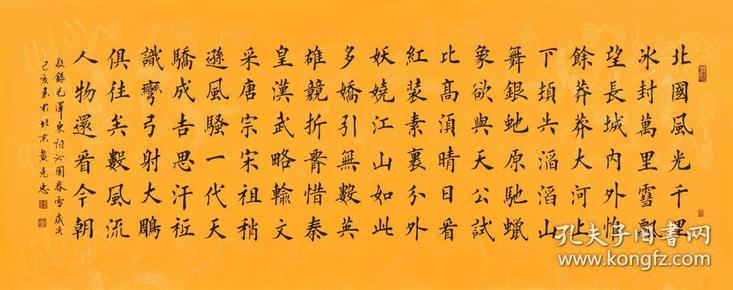 北國風光千里
冰封萬里雪飄
望長城內外惟
餘莽莽大河上
下頓失滔滔山
舞銀虵原馳蠟
象欲與天公試
比高須晴日看
紅裝素裹分外
妖嬈江山如此
多嬌引無數英
雄競折腰惜秦
皇漢武略輸文
采唐宗宋祖稍
遜風騷一代天
驕成吉思汗祗
識彎弓射大鵰
俱往矣數風流
人物還看今朝
敬錄毛澤東詞沁園春雪歲次
己亥於北京黃克忠
孔夫子旧书网
www.kongfz.com